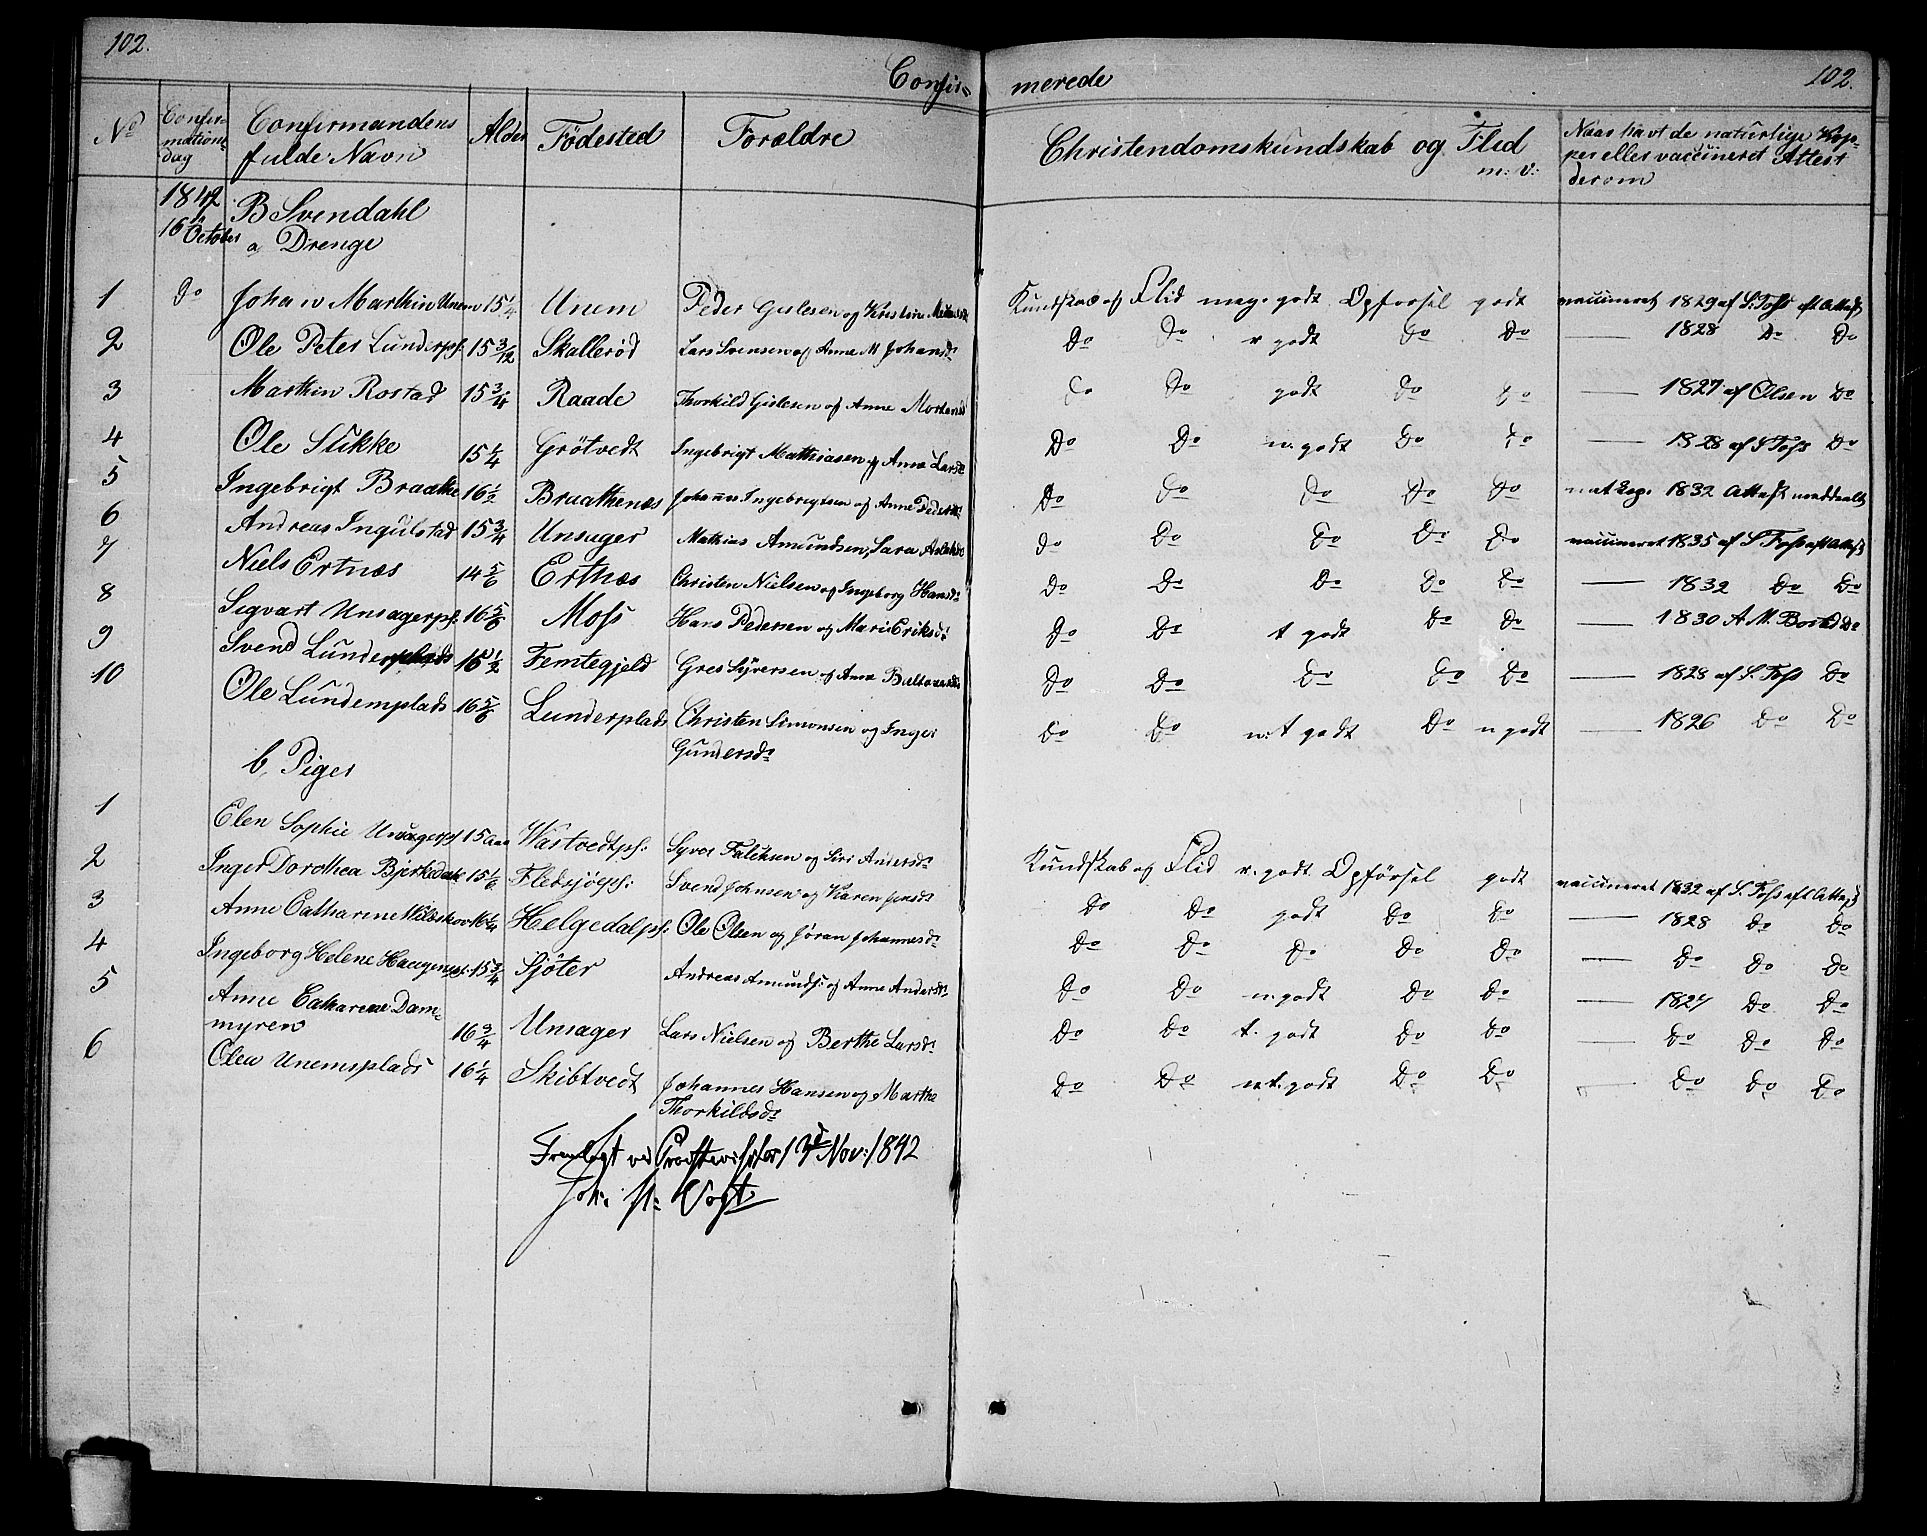 102.
Confir=
merede
102.
No
Confir-
mations
dag
Confirmandens
fulde Navn
Alder
Födested
Forældre
Christendomskundskab og Flid
m: v:
Naar havt de naturlige Kop-
per eller vaccineret Attest
derom
1842
16 October
B Svendahl
a Drenge
1 Do Johan Marthin Unem 15 1/4 Unem Peder Gislesen og Kristine Kundskab og Flid meg. godt Opförsel godt vaccineret 1829 af S. Foss eft Attest
2 Ole Peter Lunderpl. 15 3/12 Skalleröd Lars Svensen og Anne M Johansdr Do Do v godt Do Do — 1828 Do Do
3 Marthin Rostad 15 3/4 Raade Thorkild Gislesen og Anne Mortensd Do Do godt Do Do — 1827 af Olsen Do
4 Ole Slikke 15 1/4 Grötvedt Ingebrigt Mathiasen og Anne Larsdr Do Do n. godt Do Do — 1828 af S Foss Do
5 Ingebrigt Braathe 16 1/2 Braathenæs Johannes Ingebrigtsen og Anne Pedersdr Do Do Do Do Do nat kop. 1832 Attest meddeelt
6 Andreas Ingulstad 15 3/4 Unsager Mathias Amundsen, Sara Do Do Do Do Do vaccineret 1835 af S Foss eft Attest
7 Niels Ertnæs 14 5/6 Ertnæs Christen Nielsen og Ingeborg Hansdr Do Do Do Do Do — 1832 Do Do
8 Sigvart Unsagerpl. 16 5/6 Moss Hans Pedersen og Mari Eriksdr Do Do t godt Do Do — 1830 A. M. Do
9 Svend Lunderplads 15 1/2 Femtegjeld Gres Syversen og Anne Do Do Do Do Do — 1828 af S. Foss Do
10 Ole Lundemplads 16 5/6 Lunderplads Christen Simonsen og Inger
Gundersdr Do Do n: t godt Do n godt — 1826 Do Do
b, Piger
1 Elen Sophie Unsagerpl 15 Aar Wastvedtpl: Syver Falchsen og Siri Andersdr Kundskab og Flid v. godt Opförsel godt vaccineret 1832 af S. Foss eft Attest
2 Inger Dorothea Bjerkedahl 15 1/6 Fledsjöepl: Svend Johnsen og Karen Jensdr Do Do godt Do Do — 1828 Do Do
3 Anne Catharine 16 1/4 Helgedalpl: Ole Olsen og Jöran Johannesdr Do Do Do Do Do — Do Do Do
4 Ingeborg Helene Haugenpl. 15 3/4 Sjöter Andreas Amunds: og Anne Andersdr Do Do n. godt Do Do — 1827 Do Do
5 Anne Catharine Dam-
myren 16 3/4 Unsager Lars Nielsen og Berthe Larsdr Do Do t. godt Do Do — Do Do Do
6 Olea Unemsplads 16 1/4 Skibtvedt Johannes Hansen og Marthe
Thorkildsdr Do Do n t. godt Do Do — Do Do Do
Fremlagt ved Provstevisitas 17d Nov: 1842
Joh: St: Vogt